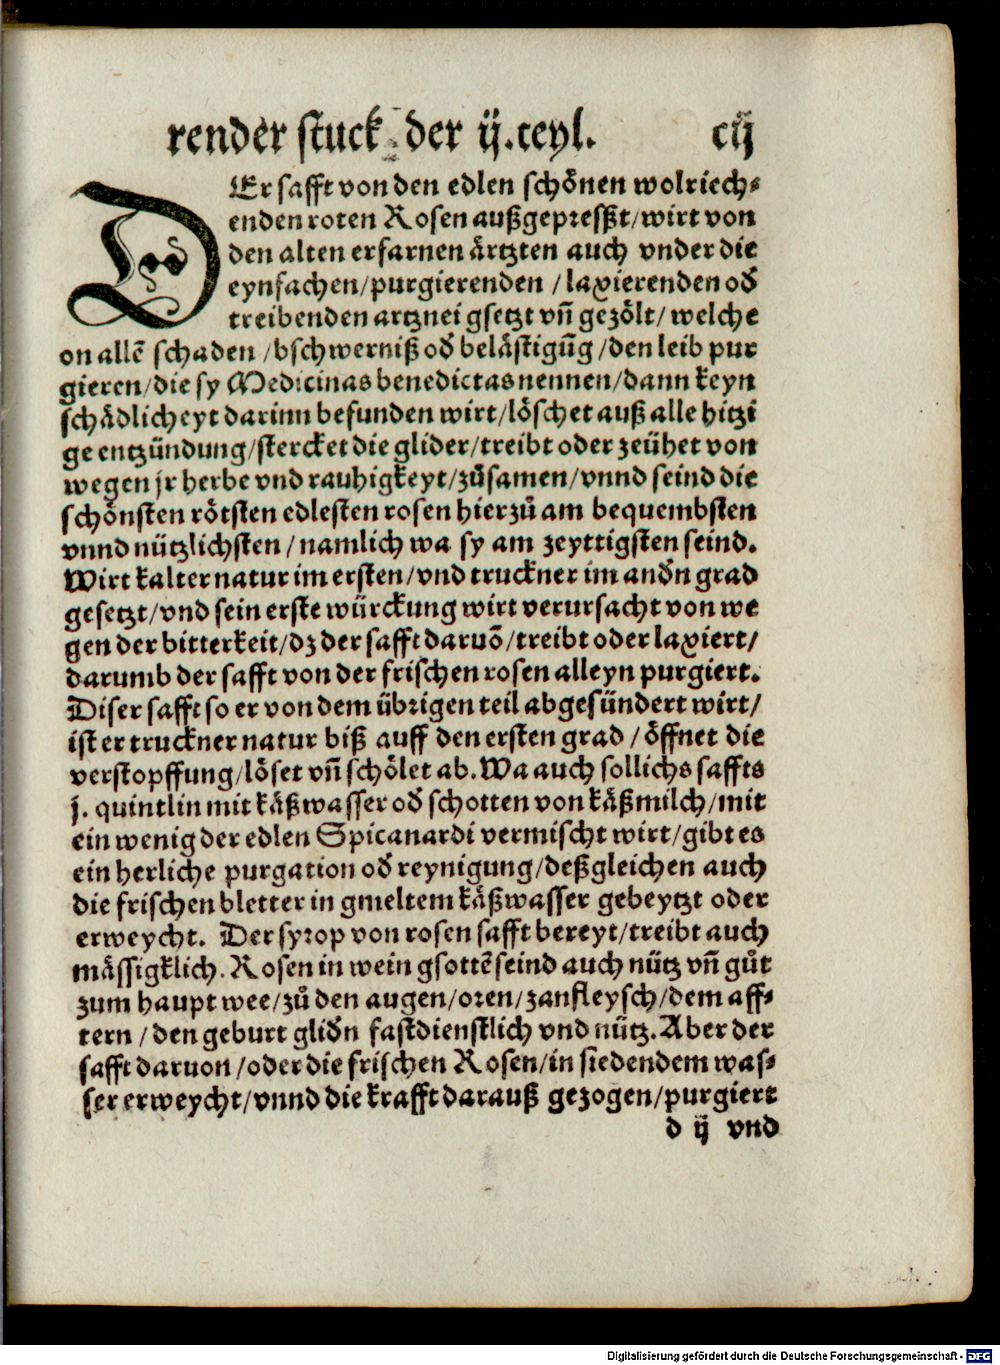 render stuck der ij.teyl. cij
DEr safft von den edlen schönen wolriech⸗
enden roten Rosen außgepresßt/wirt von
den alten erfarnen ärtzten auch vnder die
eynfachen/purgierenden /laxierenden od̃
treibenden artznei gsetzt vñ gezölt/welche
on allẽ schaden /bschwerniß od̃ belästigũg/den leib pur
gieren/die sy Medicinas benedictas nennen/dann keyn
schädlicheyt darinn befunden wirt/löschet auß alle hitzi
ge entzündung/stercket die glider/treibt oder zeühet von
wegen jr herbe vnd rauhigkeyt/zůsamen/vnnd seind die
schönsten rötsten edlesten rosen hierzů am bequembsten
vnnd nützlichsten/namlich wa sy am zeyttigsten seind.
Wirt kalter natur im ersten/vnd truckner im and̃n grad
gesetzt/vnd sein erste würckung wirt verursacht von we
gen der bitterkeit/dz der safft daruõ/treibt oder laxiert/
darumb der safft von der frischen rosen alleyn purgiert.
Diser safft so er von dem übrigen teil abgesündert wirt/
ist er truckner natur biß auff den ersten grad/öffnet die
verstopffung/löset vñ schölet ab.Wa auch sollichs saffts
j. quintlin mit käßwasser od̃ schotten von käßmilch/mit
ein wenig der edlen Spicanardi vermischt wirt/gibt es
ein herliche purgation od̃ reynigung/deßgleichen auch
die frischen bletter in gmeltem käßwasser gebeytzt oder
erweycht. Der syrop von rosen safft bereyt/treibt auch
mässigklich. Rosen in wein gsottẽ seind auch nütz vñ gůt
zum haupt wee/zů den augen/oren/zanfleysch/dem aff⸗
tern/den geburt glid̃n fast dienstlich vnd nütz.Aber der
safft daruon/oder die frischen Rosen/in siedendem was⸗
ser erweycht/vnnd die krafft darauß gezogen/purgiert
d ij vnd
Digitalisierung gefördert durch die Deutsche Forschungsgemeinschaft - DFG